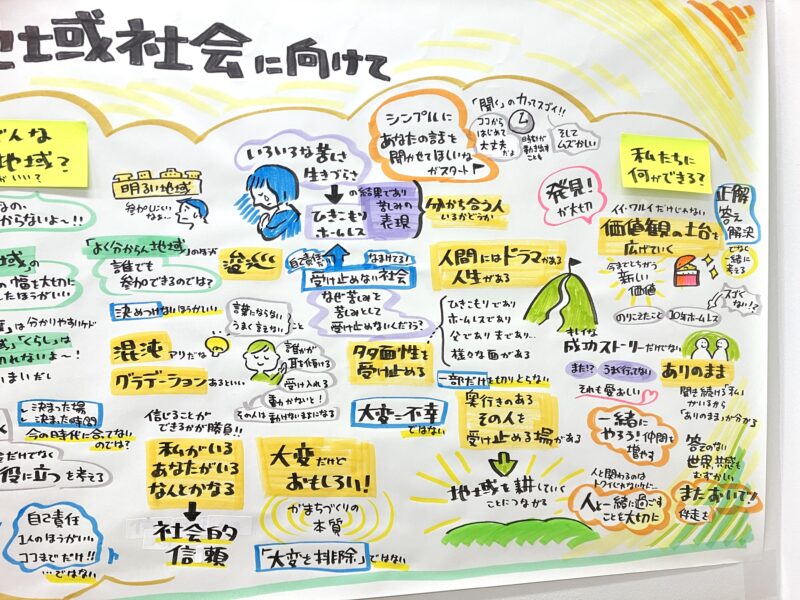 地域社会に向けて
どんな
地域？
がいい？
からないよ〜!!
明るい地域
参加しにくい
なぁ…
いろいろな苦しさ
生きづらさ
ひきこもり
ホームレス
の結果であり
苦しみの
表現
シンプルに
あなたの話を
聞かせてほしいな
がスタート
「聞く」の力ってスゴイ!!
ココから
はじめて
大丈夫
だよ
時間が
動き出す
ことも
そして
ムズかしい
分かち合う人
いるかどうか
発見！
が大切
私たちに
何ができる？
正解
答え
解決
でなく
一緒に
考える
イイ・ワルイだけじゃない
価値観の土台を
広げていく
今までとちがう
新しい
価値
のりこえたこと
10年ホームレス
スゴく
ない!?
「よく分からん地域」のほうが
誰でも
参加できるのでは？
の幅を大切に
したほうがいい
決めつけないほうがいい
言葉にならない
うまく言えない
こと
混沌
アリだな
グラデーションあるといい
誰かが
耳を傾ける
受け入れる
動かないと！
その人は動けないままになる
自己責任
なまけてる！
受け止めない社会
なぜ苦しみを
苦しみとして
受け止めないんだろう？
人間にはドラマがある
人生がある
ひきこもりであり
ホームレスであり
父であり夫であり…
様々な面がある
多面性を
受け止める
一部だけを切りとらない
キレイな
成功ストーリーだけでない
まだ!?
うまく行ってない
それも愛おしい
ありのまま
聞き続ける「私」
がいるから
「ありのまま」が分かる
は分かりやすいけど
「くらし」は
切れないよ〜！
いまいだし
決まった場
決まった時間
今の時代に合ってない
のでは？
だけでなく
役に立つを考える
信じることが
できるかが勝負!!
私がいる
あなたがいる
なんとかなる
社会的
信頼
大変＝不幸
ではない
大変だけど
おもしろい！
がまちづくりの
本質
「大変を排除」ではない
奥行きのある
その人を
受け止める場がある
地域を耕していく
ことにつながる
一緒に
やろう！仲間を
増やす
人と関わるのは
トワイじゃないけど…
人と一緒に過ごす
ことを大切に
答えのない
世界、共感も
むずかしい
またおいで!!
自己責任
1人のほうがいい
ココまでだけ!!
…ではない